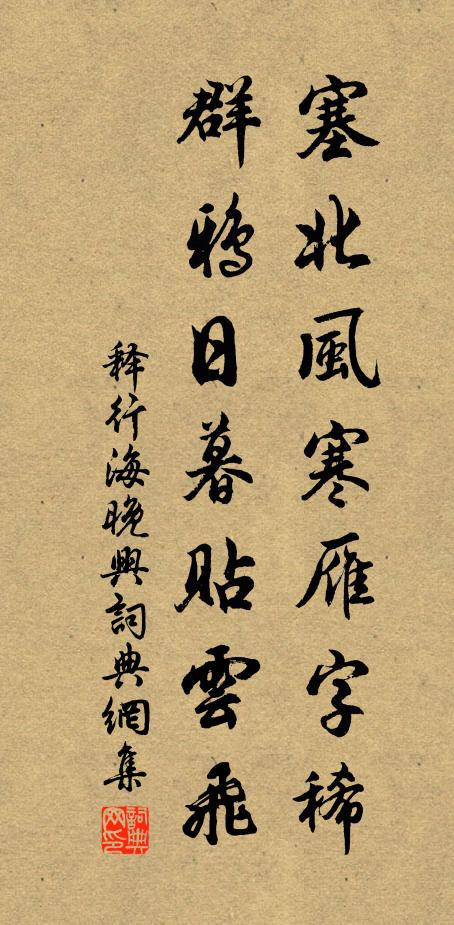 塞北風寒雁字稀
群鴉日暮貼雲飛
释行海晚興詞典網集
詞典网印